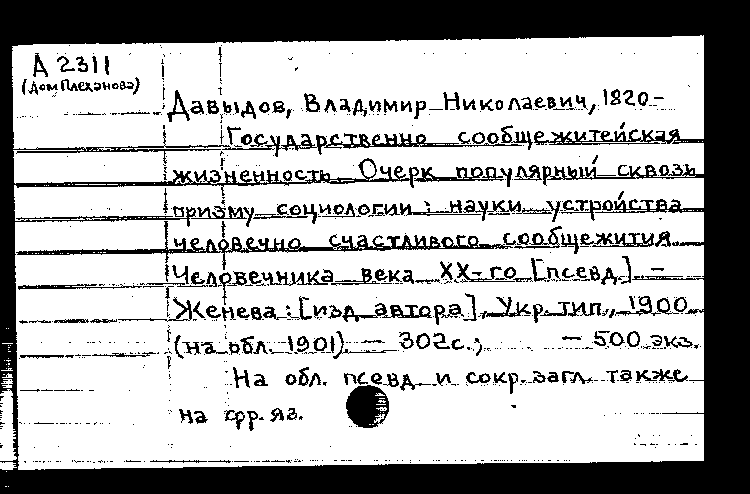 А 2311
(Дом Плеханова)
Давыдов, Владимир Николаевич, 1820-
Государственно сообщежитейская
жизненность. Очерк популярный сквозь
призму социологии: науки устройства
человечно счастливого сообщежития
Человечника века XX-го [псевд.] -
Женева: [изд. автора], Укр. тип., 1900
(на обл. 1901). - 302с.; - 500 экз.
На обл. псевд. и сокр. загл. также
на фр. яз.